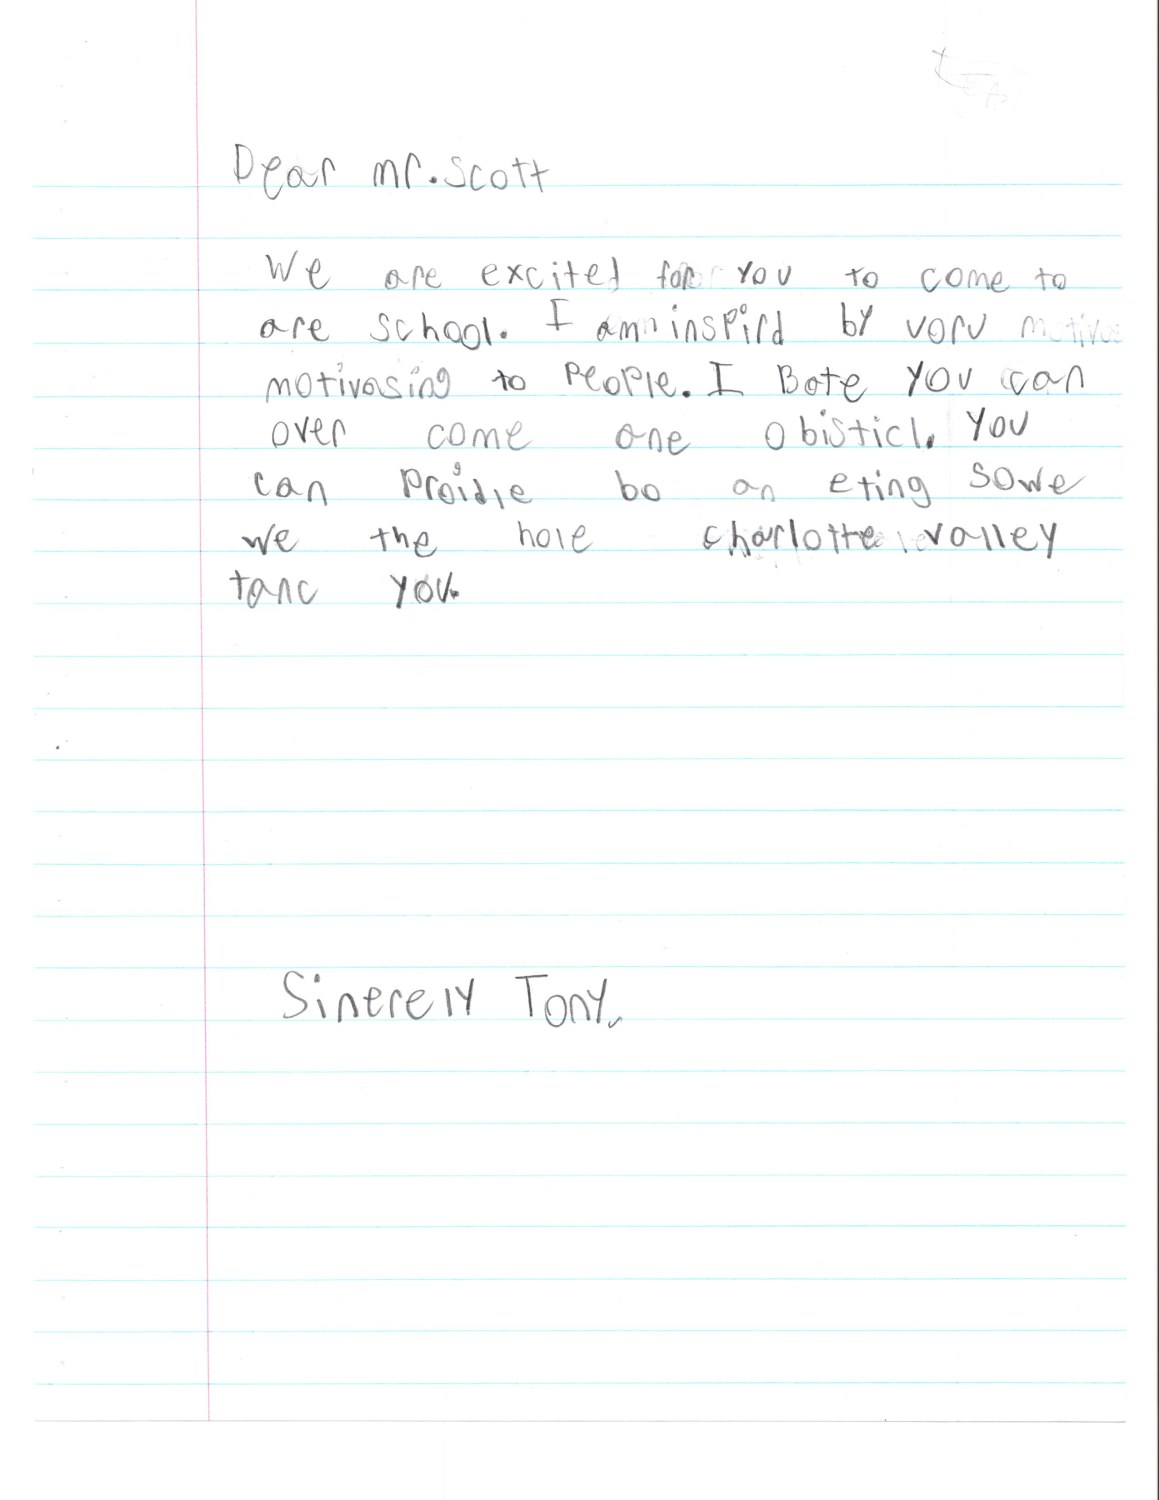 Dear mr. Scott
We are excited for you to come to
are school. I am inspird by vorv
motivasing to People. I Bate you can
over come ane obisticl. you
can Proidie bo an eting sowe
we the hole charlotte valley
tanc you.
Sinerely Tony.